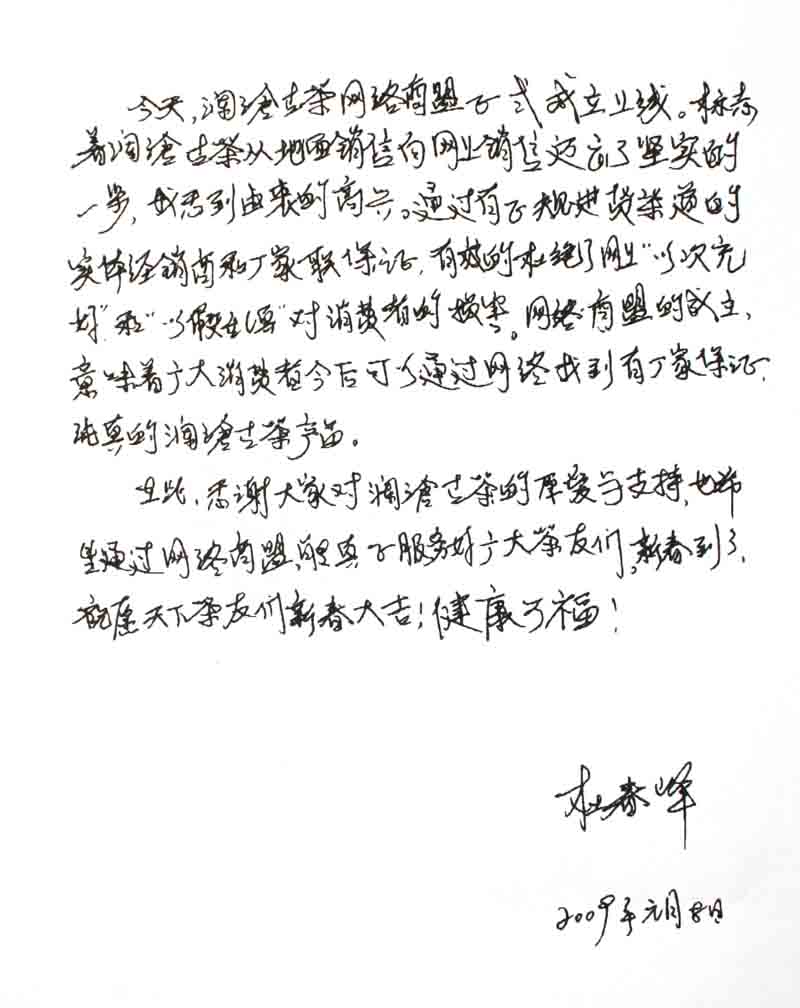 今天，澜沧古茶网络商盟正式成立上线。标志
着澜沧古茶从地面销售向网上销售迈出了坚实的
一步，我感到由衷的高兴。通过有正规进货渠道的
实体经销商和厂家联保证，有效的杜绝了网上“以次充
好”和“以假乱真”对消费者的损害。网络商盟的成立，
意味着广大消费者今后可以通过网络找到有厂家保证，
纯真的澜沧古茶产品。
在此，感谢大家对澜沧古茶的厚爱与支持，也希
望通过网络商盟，能真正服务好广大茶友们，新春到了，
祝愿天下茶友们新春大吉！健康万福！
杜春峄
2009年元月8日